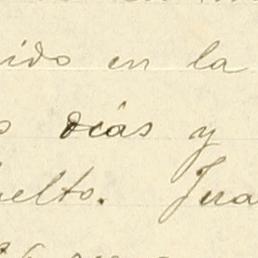 ido en la
s días y
uelto. Jua